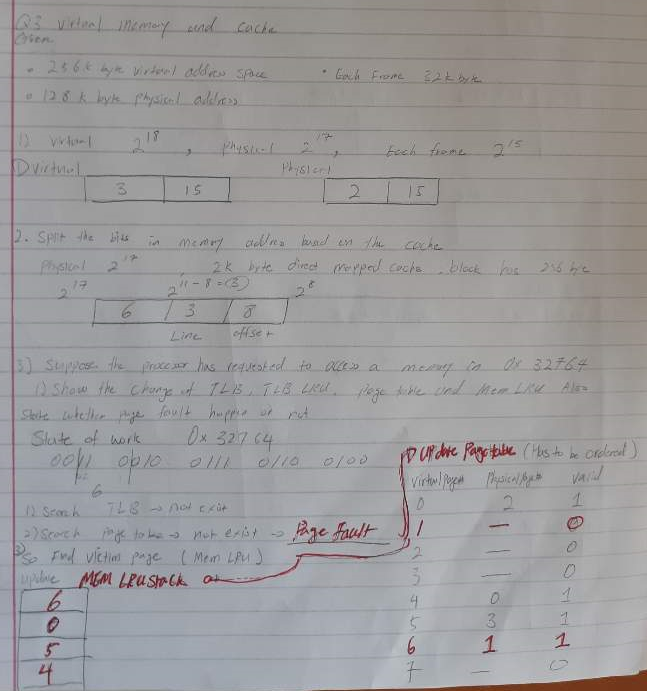 Q3 virtual memory and cache
Given
• 256k byte virtual address space • Each frame 32k byte
• 128k byte physical address
1) virtual 2^18 , physical 2^17 , Each frame 2^15
① virtual physical
3 | 15 2 | 15
2. Split the bits in memory address based on the cache
Physical 2^17 , 2k byte direct mapped cache, block has 256 byte
2^17 2^11-8=(3) 2^8
6 | 3 | 8
Line offset
3) Suppose the processor has requested to access a memory in 0x 32764
1) Show the change of TLB, TLB LRU, page table and Mem LRU Also
State whether page fault happen or not
State of work 0x 32764
0011 0010 0111 0110 0100
6
1) Search TLB → not exist
2) Search page table → not exist → Page Fault
3) So Find victim page (Mem LRU)
update MEM LRU Stack
6
0
5
4
① Update Page table (Has to be ordered)
virtual page# Physical page# valid
0 2 1
1 — 0
2 — 0
3 — 0
4 0 1
5 3 1
6 1 1
7 — 0